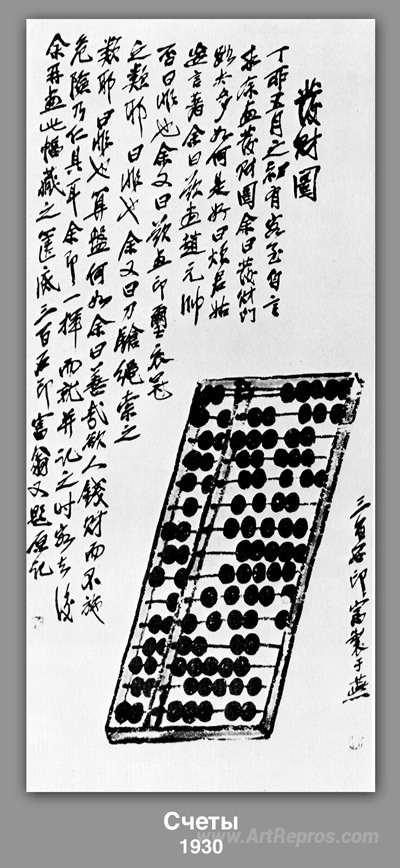 發財圖
丁卯五月之初有客至自言
求余畫發財圖余曰發財門
路太多如何是好曰煩君姑
妄言著余曰欲畫趙元帥
否曰非也余又曰欲畫印璽衣冠
之類耶曰非也余又曰刀鎗繩索之
類耶曰非也算盤何如余曰善哉欲人錢財而不施
危險乃仁具耳余即一揮而就并記之時客去後
余再畫此幅藏之篋底三百石印富翁又題原記
三百石印富製于燕
Счеты
1930
www.ArtRepros.com